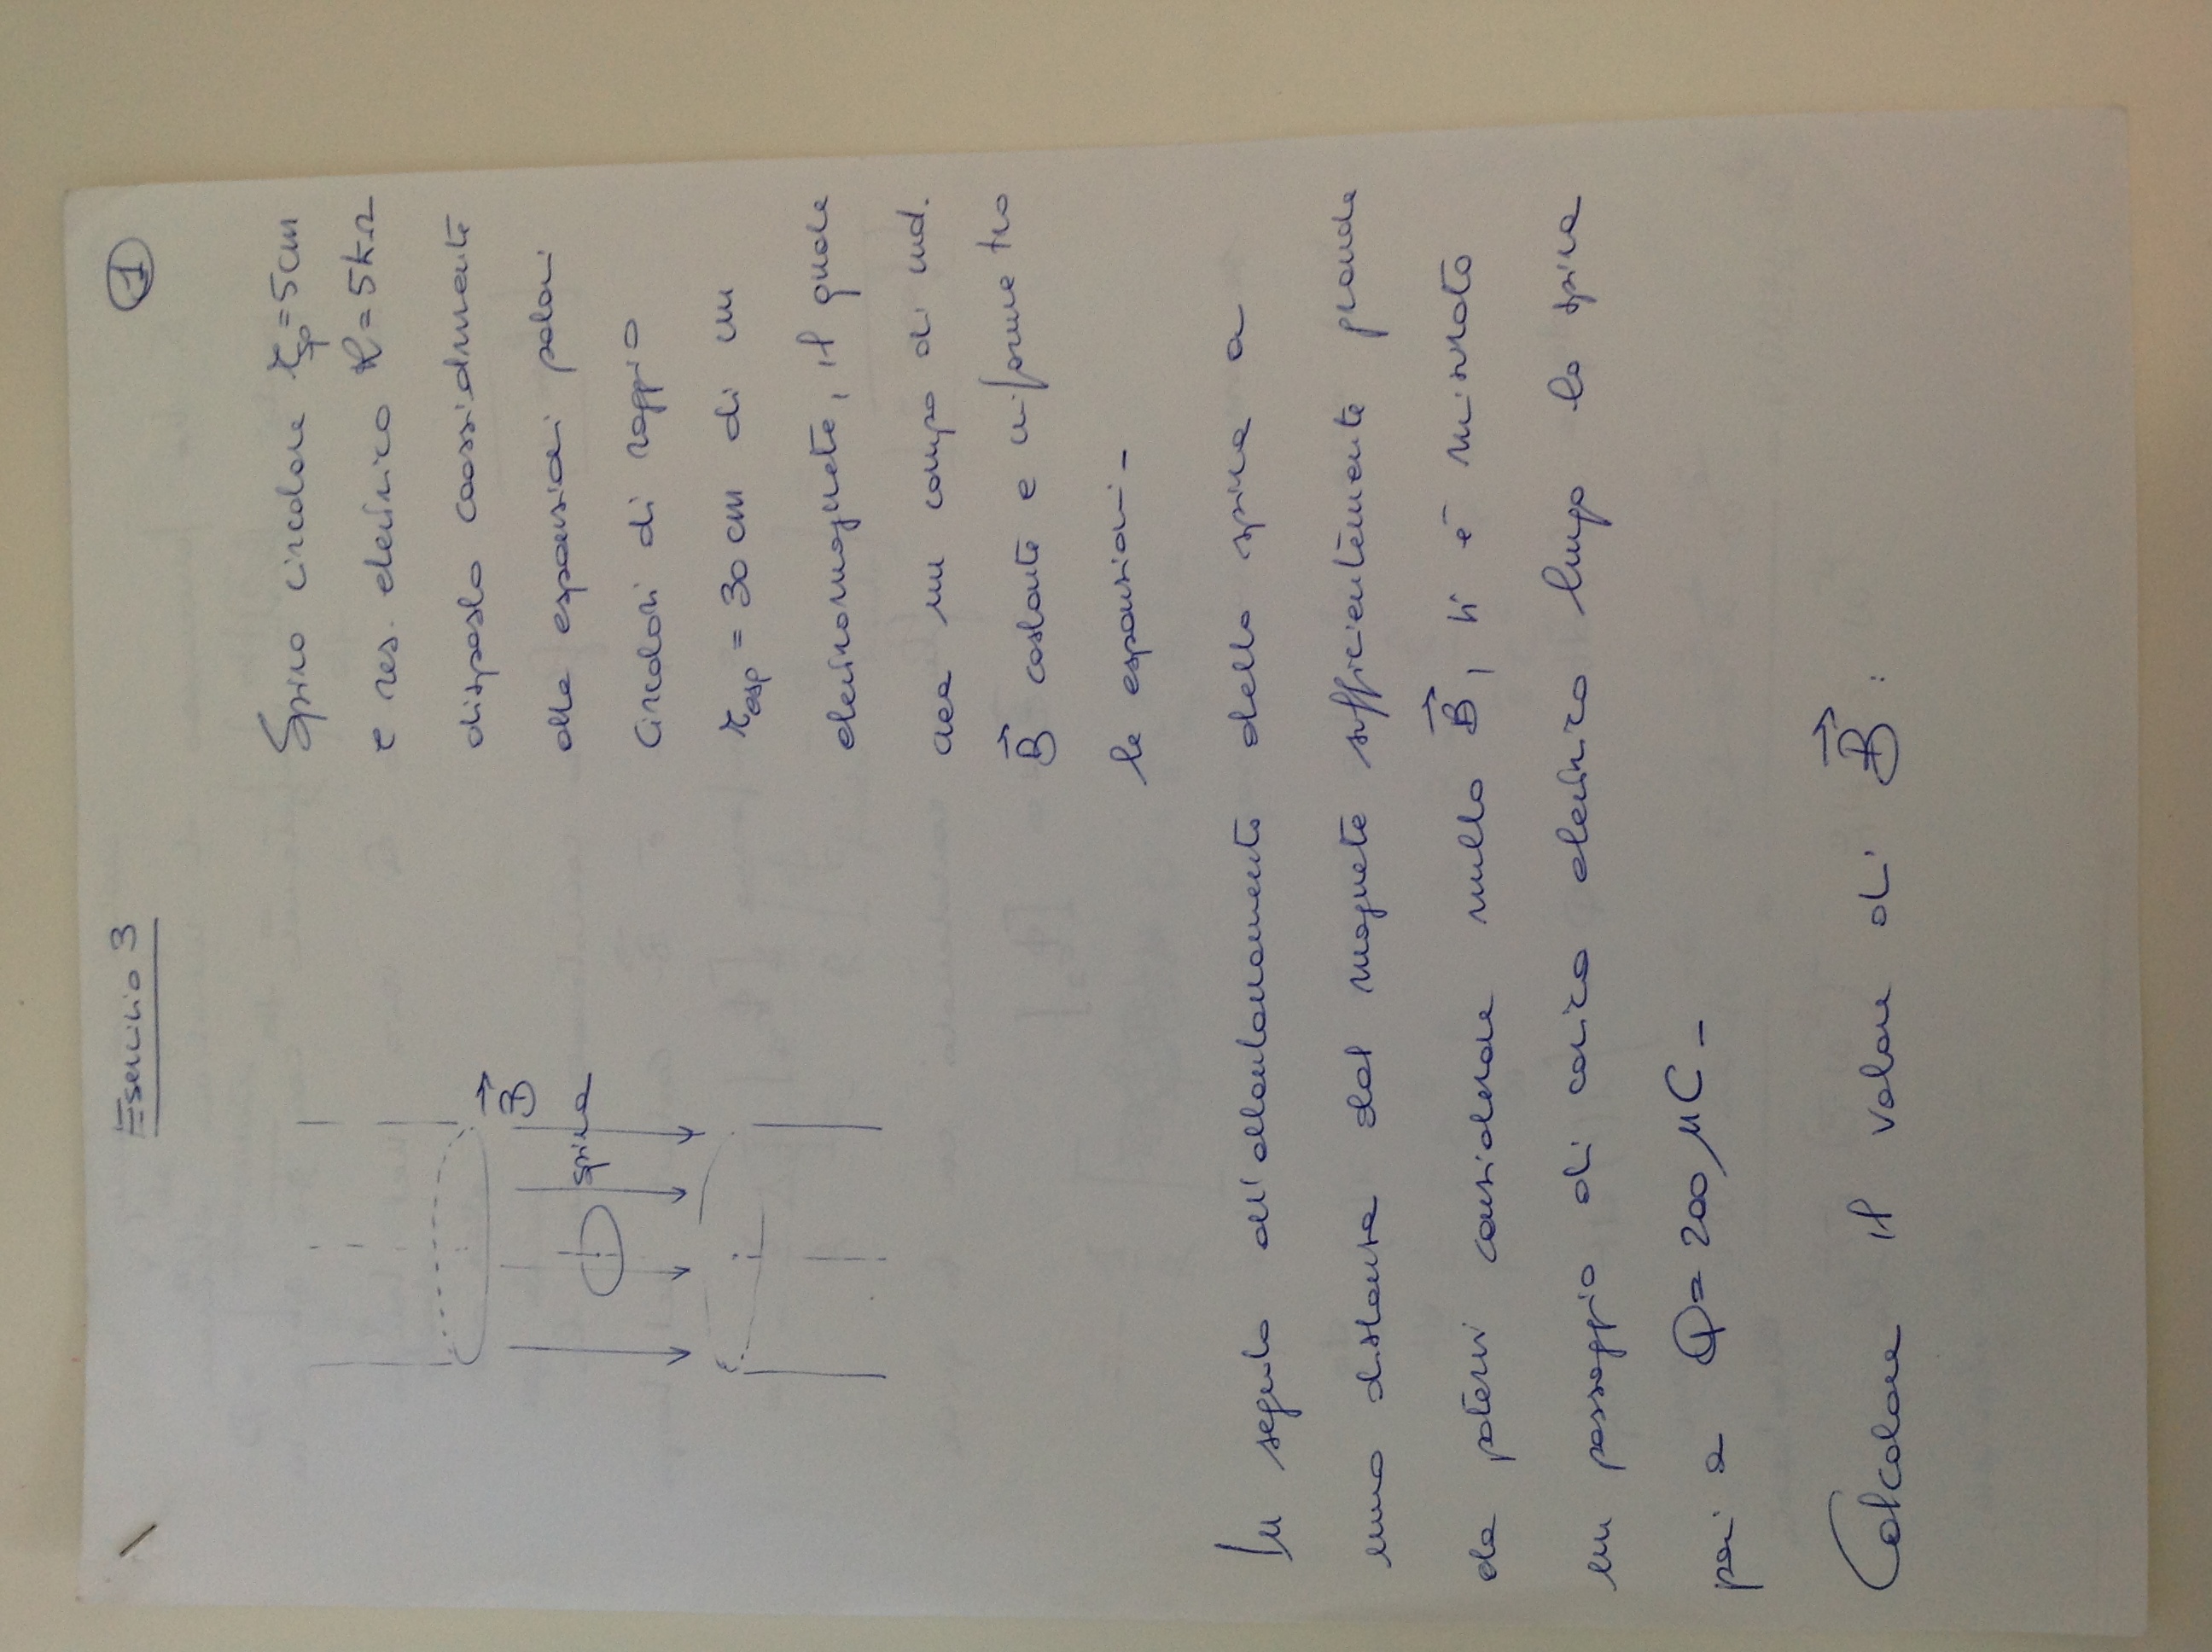 Esercizio 3
1
Spira circolare r_sp = 5 cm
e res. elettrica R = 5 kΩ
disposta coassialmente
alle espansioni polari
circolari di raggio
r_esp = 30 cm di un
elettromagnete, il quale
crea un campo di ind.
B⃗ costante e uniforme tra
le espansioni -
B⃗
spira
In seguito all'allontanamento della spira a
una distanza dal magnete sufficientemente grande
da potervi considerare nullo B⃗, si è misurato
un passaggio di carica elettrica lungo la spira
pari a Q = 200 μC -
Calcolare il valore di B⃗ :